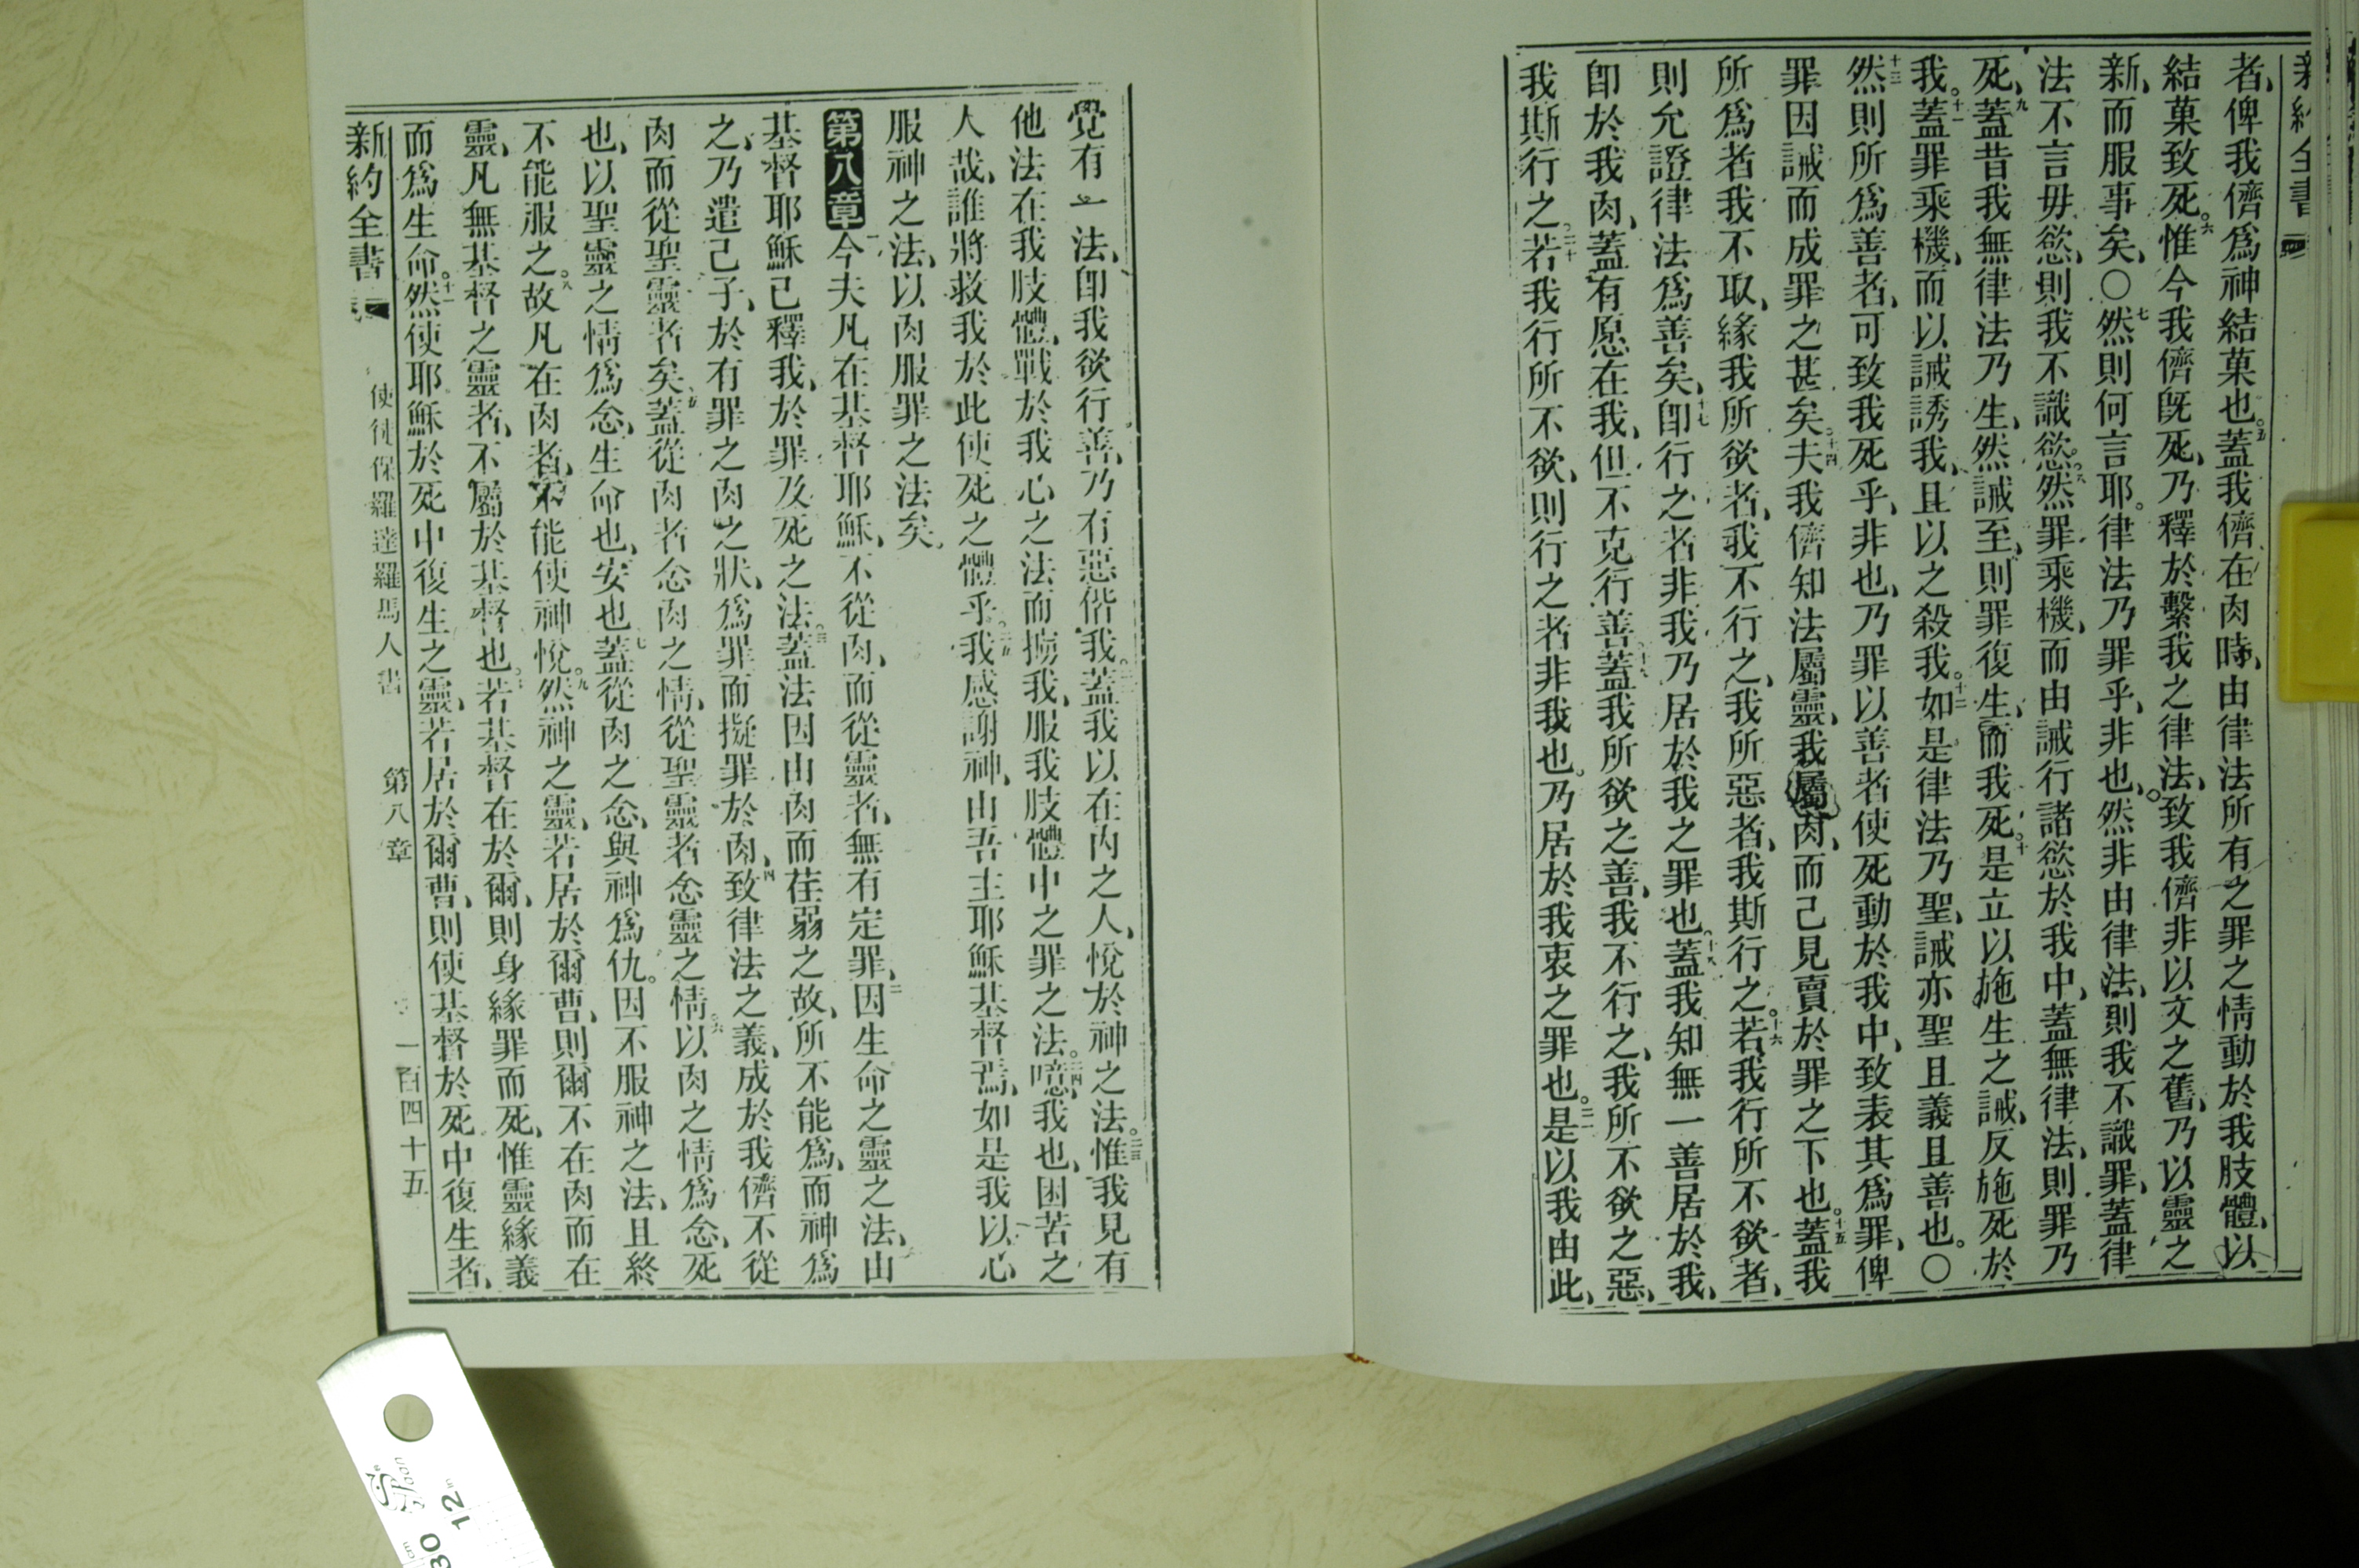 新約全書
者、俾我儕爲神結菓也。五蓋我儕在肉時、由律法所有之罪之情動於我肢體、以
結菓致死。六惟今我儕旣死、乃釋於繫我之律法、致我儕非以文之舊、乃以靈之
新、而服事矣、〇七然則何言耶。律法乃罪乎、非也、然非由律法、則我不識罪、蓋律
法不言毋慾、則我不識慾。八然罪乘機、而由誡行諸慾於我中、蓋無律法、則罪乃
死、九蓋昔我無律法乃生、然誡至、則罪復生、而我死、十是立以施生之誡、反施死於
我。十一蓋罪乘機、而以誡誘我、且以之殺我。十二如是律法乃聖、誡亦聖且義且善也。〇
十三然則所爲善者、可致我死乎、非也、乃罪以善者使死動於我中、致表其爲罪、俾
罪因誡而成罪之甚矣。十四夫我儕知法屬靈、我屬肉、而己見賣於罪之下也。十五蓋我
所爲者我不取、緣我所欲者、我不行之、我所惡者、我斯行之。十六若我行所不欲者、
則允證律法爲善矣、十七卽行之者非我、乃居於我之罪也。十八蓋我知無一善居於我、
卽於我肉、蓋有愿在我、但不克行善。十九蓋我所欲之善、我不行之、我所不欲之惡、
我斯行之。二十若我行所不欲、則行之者非我也。乃居於我衷之罪也。二一是以我由此、
覺有一法、卽我欲行善、乃有惡偕我。二二蓋我以在內之人、悅於神之法。二三惟我見有
他法在我肢體、戰於我心之法而擄我、服我肢體中之罪之法。二四噫、我也、困苦之
人哉、誰將救我於此使死之體乎。二五我感謝神、由吾主耶穌基督焉、如是我以心
服神之法、以肉服罪之法矣。
第八章一今夫凡在基督耶穌、不從肉、而從靈者、無有定罪、二因生命之靈之法、由
基督耶穌己釋我、於罪及死之法。三蓋法因由肉而荏弱之故、所不能爲、而神爲
之、乃遣己子、於有罪之肉之狀、爲罪而擬罪於肉、四致律法之義、成於我儕不從
肉而從聖靈者矣、五蓋從肉者念肉之情、從聖靈者念靈之情。六以肉之情爲念、死
也、以聖靈之情爲念、生命也、安也、七蓋從肉之念、與神爲仇。因不服神之法、且終
不能服之。八故凡在肉者、不能使神悅。九然神之靈、若居於爾曹、則爾不在肉而在
靈、凡無基督之靈者、不屬於基督也。十若基督在於爾、則身緣罪而死、惟靈緣義
而爲生命。十一然使耶穌於死中復生之靈、若居於爾曹、則使基督於死中復生者、
新約全書 使徒保羅達羅馬人書 第八章 一百四十五
30 12